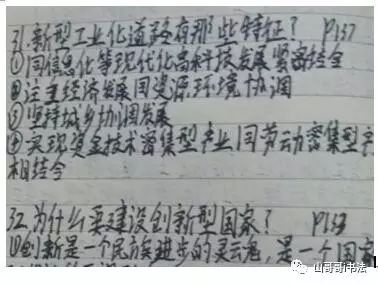 31.新型工业化道路有那些特征? P137
①同信息化等现代化高科技发展紧密结合
②注重经济发展同资源环境协调
③坚持城乡协调发展
④实现资金技术密集型产业同劳动密集型产
相结合
32.为什么要建设创新型国家? P138
①创新是一个民族进步的灵魂,是一个国家
山哥哥书法